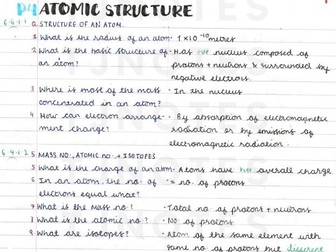 P4 ATOMIC STRUCTURE
6.4.1.1 Q STRUCTURE OF AN ATOM
1 What is the radius of an atom · 1 × 10⁻¹⁰ metres
2 What is the basic structure of · Has +ve nucleus composed of
an atom? protons + neutrons & surrounded by
negative electrons
3 Where is most of the mass · In the nucleus
concentrated in an atom?
4 How can electron arrange- · By absorption of electromagnetic
ment change? radiation or by emissions of
electromagnetic radiation.
6.4.1.2 5 MASS NO., ATOMIC NO. + ISOTOPES
5 What is the charge of an atom · Atoms have no overall charge
6 In an atom, the no. of · = no. of protons
electrons equal what?
7 What is the mass no.? · Total no. of protons + neutrons
8 What is the atomic no.? · No of protons
9 What are isotopes? · Atom of the same element with
same no of protons but different